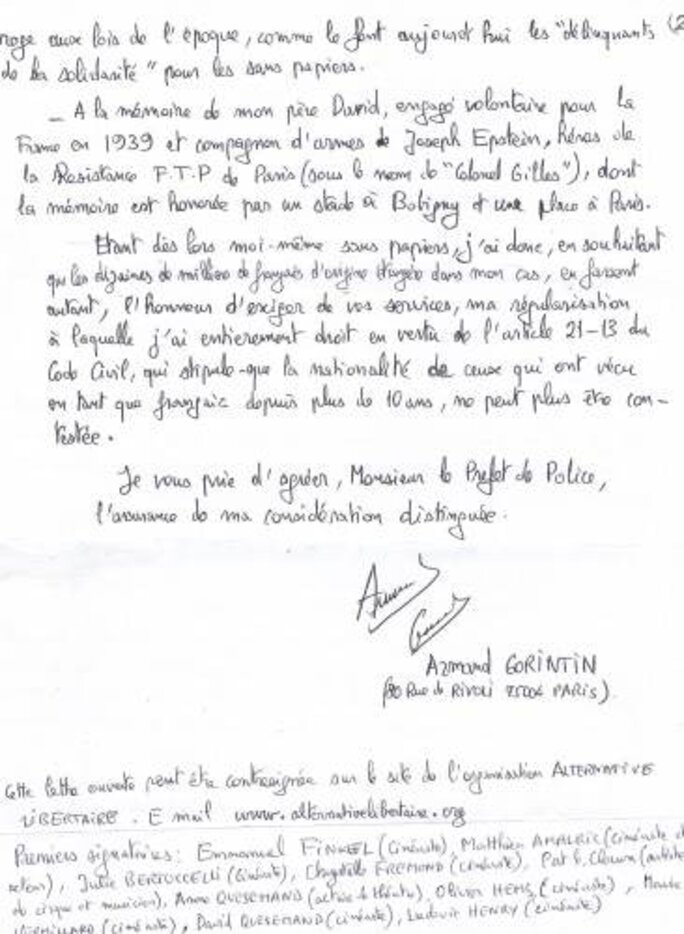 aux lois de l'époque, comme le font aujourd'hui les "délinquants (2
de la solidarité" pour les sans papiers.
- A la mémoire de mon père David, engagé volontaire pour la
France en 1939 et compagnon d'armes de Joseph Epstein, héros de
la Resistance F.T.P de Paris (sous le nom de "Colonel Gilles"), dont
la mémoire est honorée par un stade à Bobigny et une place à Paris.
Etant dès lors moi-même sans papiers, j'ai donc, en souhaitant
que les dizaines de milliers de français d'origine étrangère dans mon cas, en fassent
autant, l'honneur d'exiger de vos services, ma régularisation
à laquelle j'ai entierement droit en vertu de l'article 21-13 du
Code Civil, qui stipule que la nationalité de ceux qui ont vécu
en tant que français depuis plus de 10 ans, ne peut plus être con-
testée.
Je vous prie d'agréer, Monsieur le Prefet de Police,
l'assurance de ma considération distinguée.
Armand GORINTIN
(80 Rue de RIVOLI 75004 PARIS)
Cette lettre ouverte peut être contresignée sur le site de l'organisation ALTERNATIVE
LIBERTAIRE. E mail www.alternativelibertaire.org
Premiers signataires: Emmanuel FINKEL (Cinéaste), Matthieu AMALRIC (cinéaste et
acteur), Julie BERTUCCELLI (Cinéaste), FREMOND (cinéaste), Pat le Clown (artiste
de cirque et musicien), Anne QUESEMAND (actrice de théâtre), Olivier (cinéaste),
(cinéaste), David QUESEMAND (cinéaste), Ludovic HENRY (cinéaste)